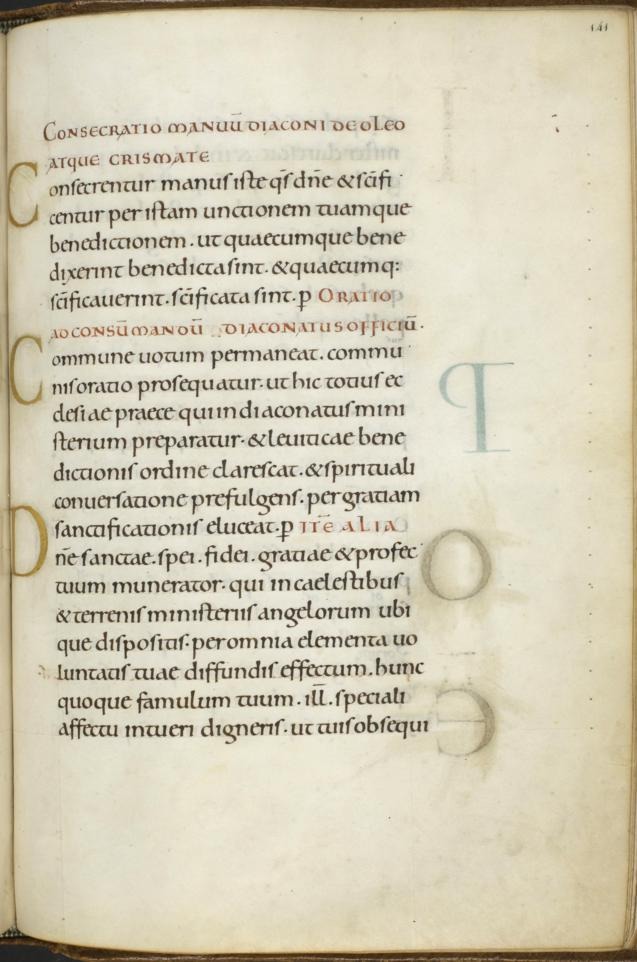 141
CONSECRATIO MANUŪ DIACONI DE OLEO
ATQUE CRISMATE
Consecrentur manus iste qs dne & scifi
centur per istam unctionem tuamque
benedictionem. ut quaecumque bene
dixerint benedicta sint. & quaecumq:
scificauerint. scificata sint. p ORATIO
AD CONSŪMANDŪ DIACONATUS OFFICIŪ.
Commune uotum permaneat. commu
nis oratio prosequatur. ut hic totius ec
clesiae praece qui in diaconatus mini
sterium preparatur. & leuiticae bene
dictionis ordine clarescat. & spirituali
conuersatione prefulgens. per gratiam
sanctificationis eluceat. p ITE ALIA
Dne sanctae. spei. fidei. gratiae & profec
tuum munerator. qui in caelestibus
& terrenis ministeriis angelorum ubi
que dispositis. per omnia elementa uo
luntatis tuae diffundis effectum. hunc
quoque famulum tuum. ill. speciali
affectu intueri digneris. ut tuis obsequi